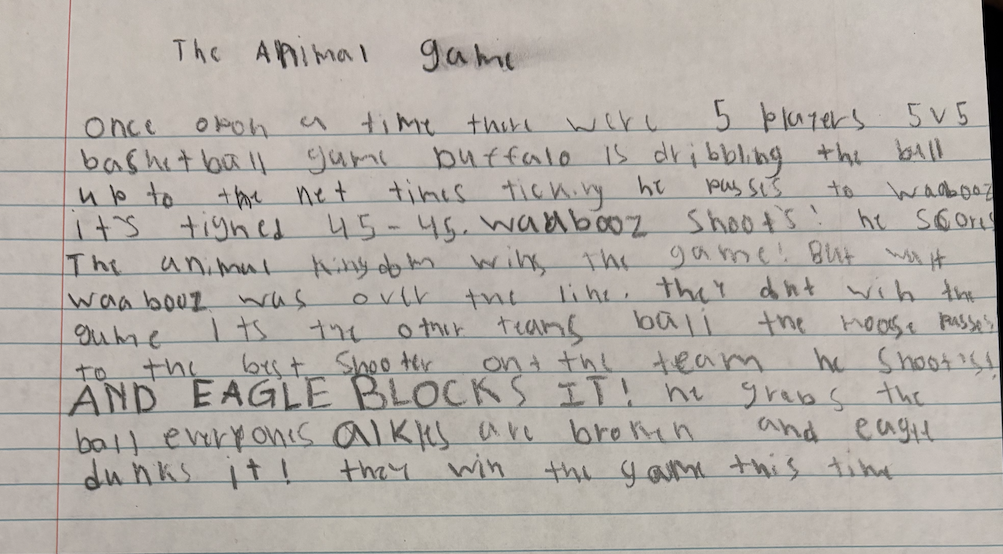 The Animal game
Once opon a time there were 5 players 5v5
basketball game buffalo is dribbling the ball
up to the net times ticking he passes to waabooz
it's tighed 45-45. waabooz shoots! he scores
The animal kingdom wins the game! But wait
waabooz was over the line. they dnt win the
game Its the other teams ball the moose passes
to the best shooter on the team he shoots!
AND EAGLE BLOCKS IT! he grabs the
ball everyones are broken and eagle
dunks it! they win the game this time